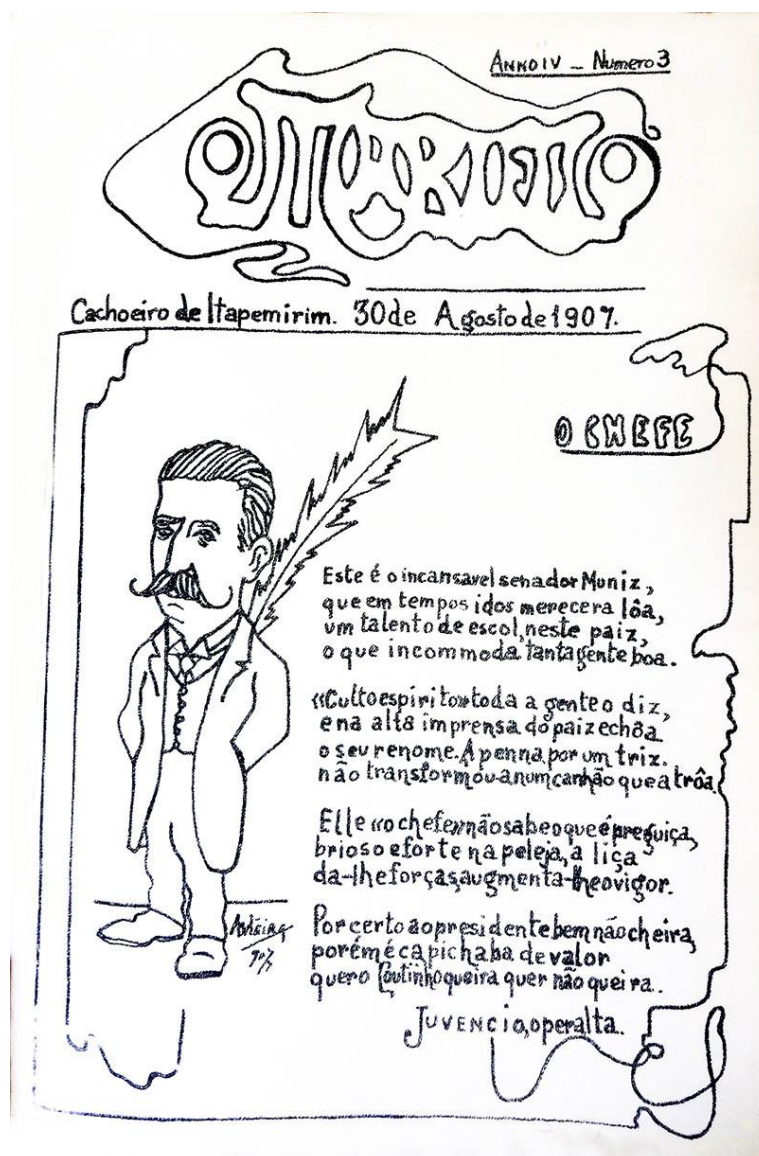 ANNO IV – Numero 3
O MARTELLO
Cachoeiro de Itapemirim. 30 de Agosto de 1907.
O CHEFE
Este é o incansavel senador Moniz,
que em tempos idos merecera lôa,
um talento de escol, neste paiz,
o que incommoda tanta gente boa.
«Culto espirito» toda a gente o diz,
e na alta imprensa do paiz echôa
o seu renome. A penna por um triz.
não transformou-a num canhão que atrôa.
Elle «o chefe» não sabe o que é preguiça,
brioso e forte na peleja, a liça
da-lhe forças, augmenta-lhe o vigor.
Por certo ao presidente bem não cheira,
porém é capichaba de valor
quero Coutinho queira quer não queira.
JUVENCIO, o peralta.
907